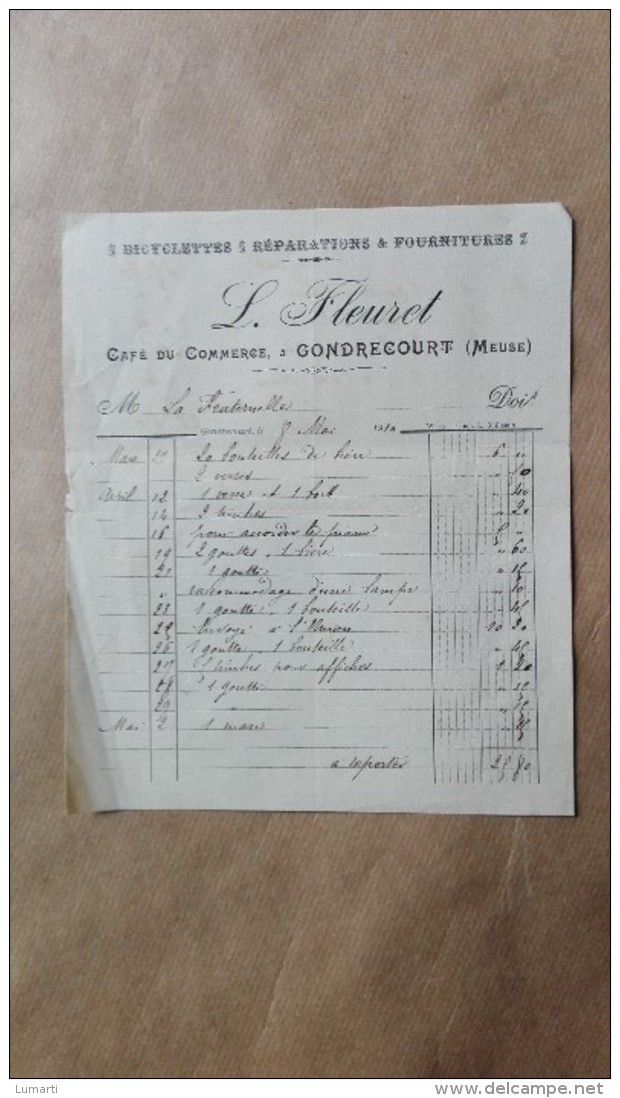 BICYCLETTES RÉPARATIONS & FOURNITURES
L. Fleuret
CAFÉ DU COMMERCE, à GONDRECOURT (MEUSE)
M La Fraternelle Doit
Gondrecourt, le 8 Mai
Mars 27 20 bouteilles de bière 6 "
2 verres " 10
Avril 12 1 verre et 1 bock
14 2 timbres " 20
16 pour accorder le piano "
19 2 gouttes, 1 bière " 60
21 1 goutte "
" raccommodage d'une lampe "
23 1 goutte, 1 bouteille "
Envoyé à 10 20
26 1 goutte, 1 bouteille "
27 timbres pour affiches 20
28 1 goutte "
29 " "
Mai 2 1 marc "
a reporter 80
Lumarti
www.delcampe.net